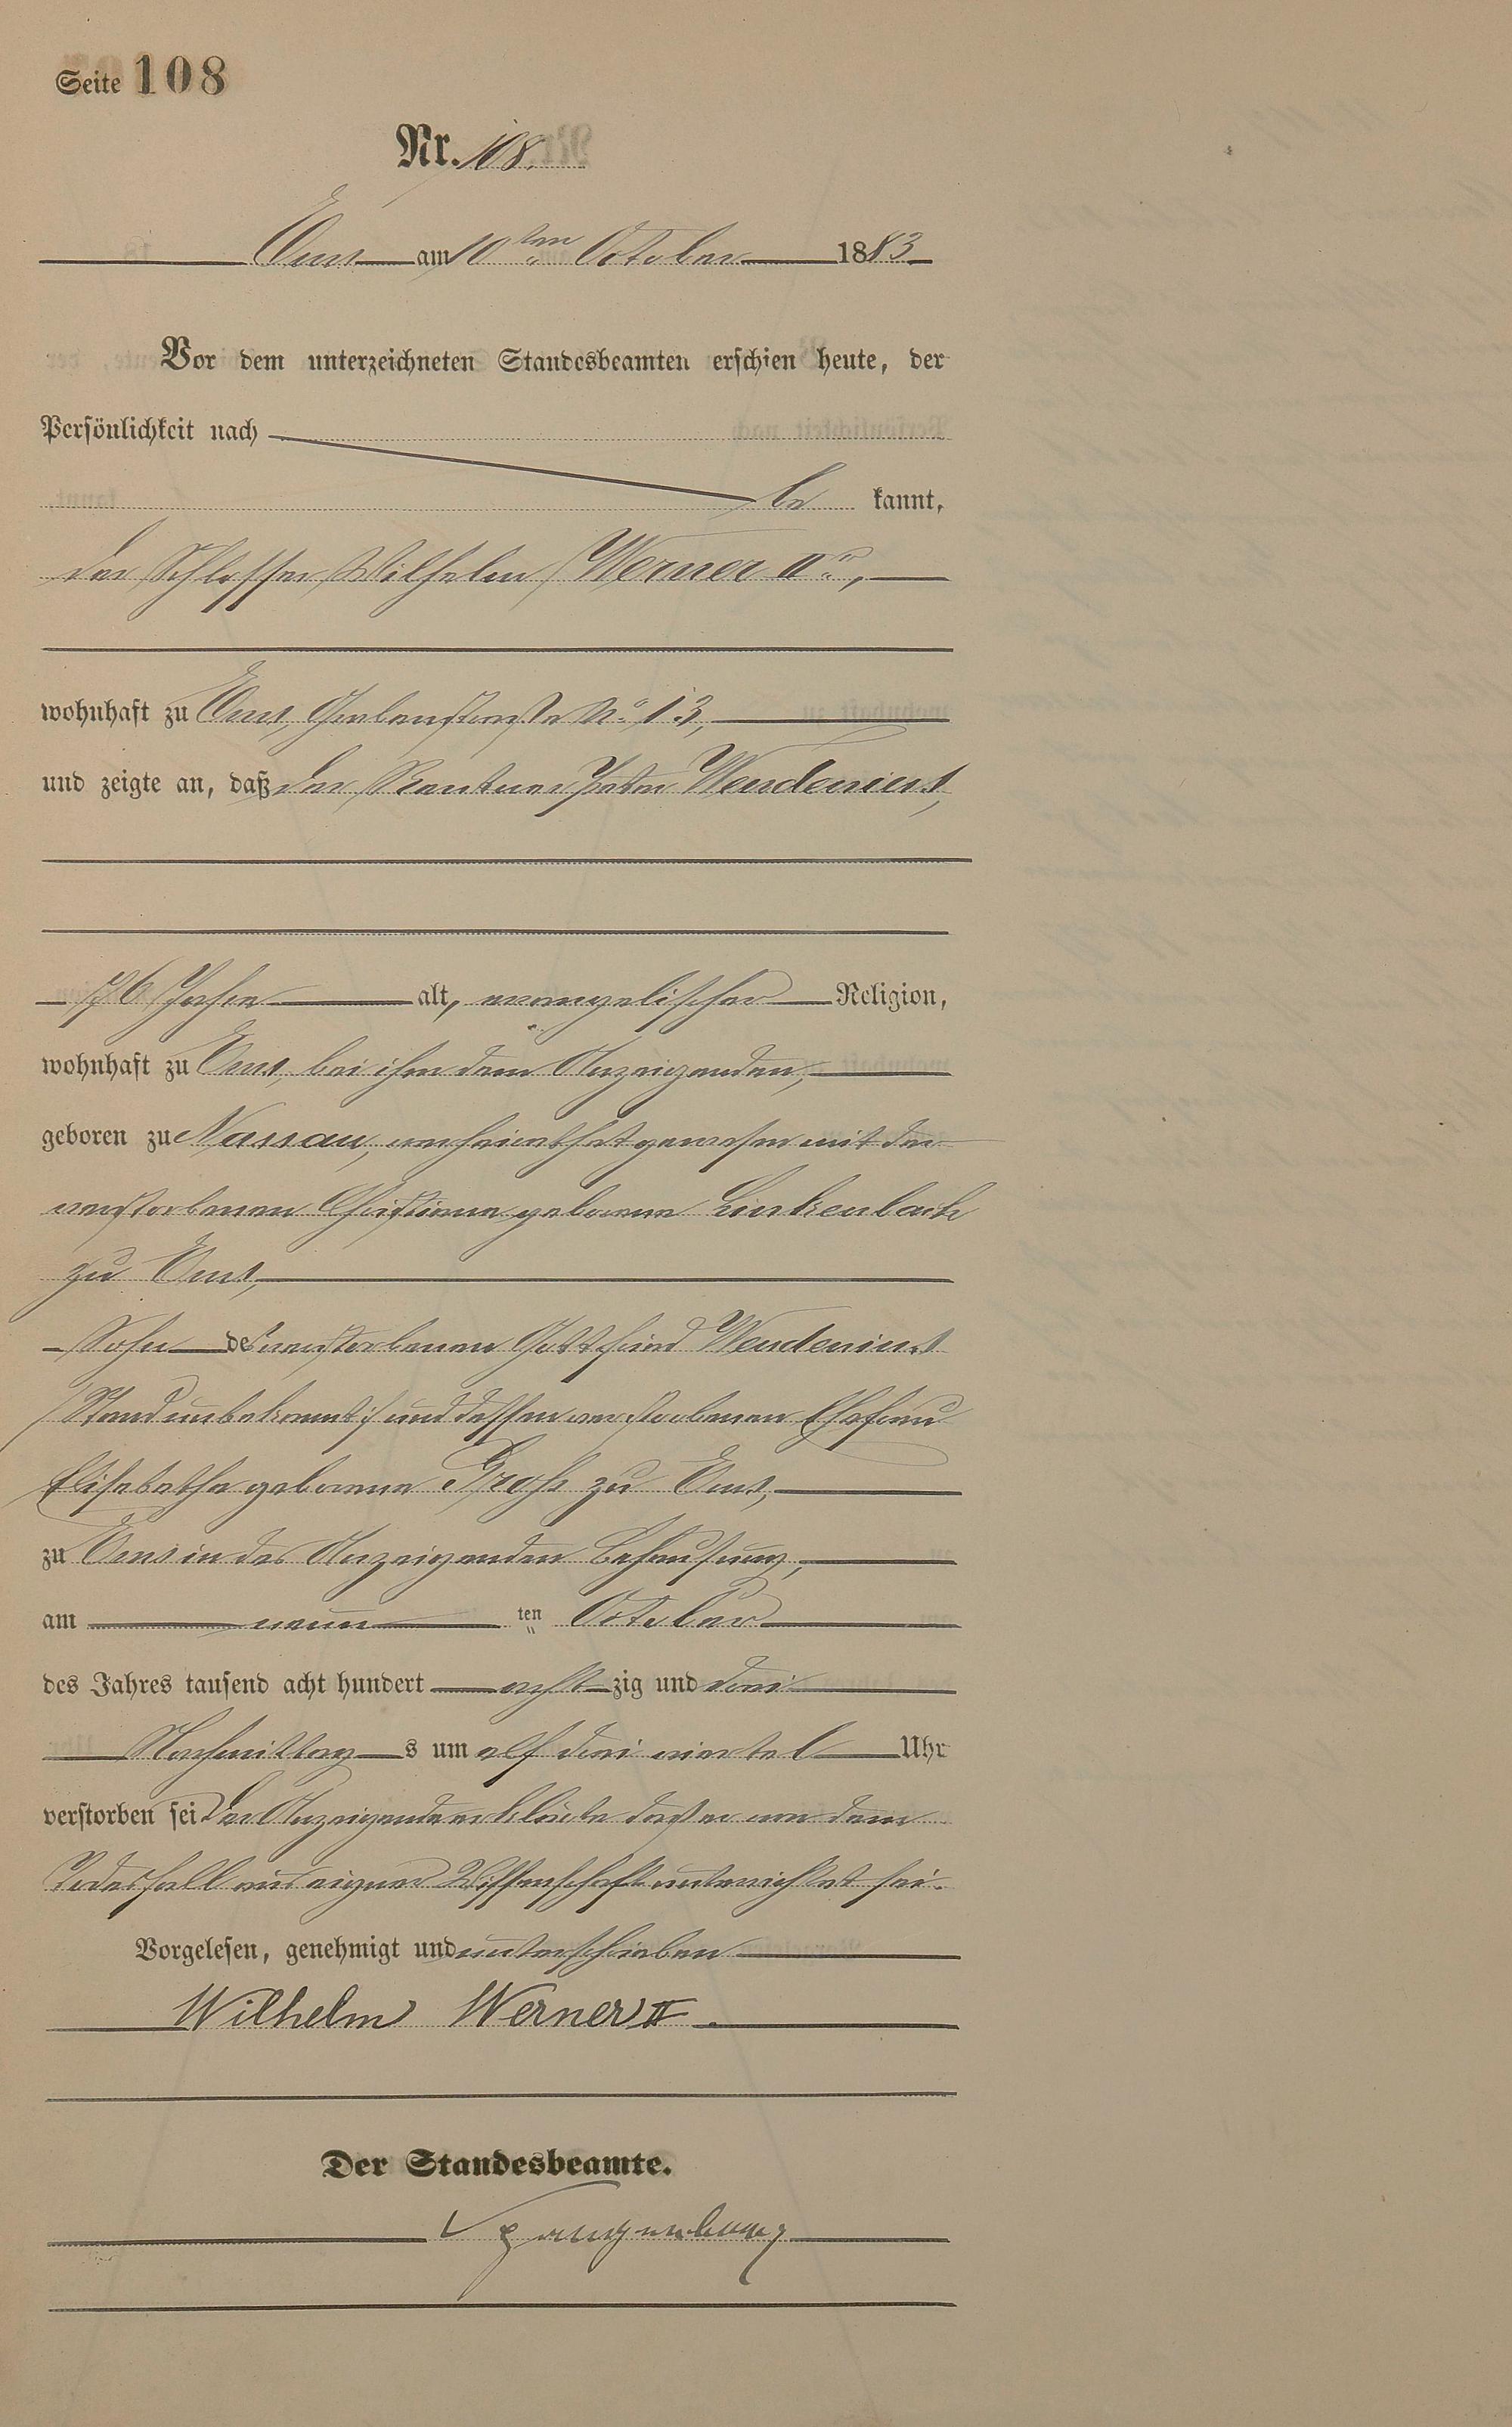 Seite 108
Nr. 108.
Ems am 10ten October 1883
Vor dem unterzeichneten Standesbeamten erschien heute, der
Persönlichkeit nach
be kannt,
der Schlosser Wilhelm Werner IIr,
wohnhaft zu Ems, Grabenstraße No 13,
und zeigte an, daß der Rentner Peter Wendenius,
76 Jahre alt, evangelischer Religion,
wohnhaft zu Ems, bei ihm dem Anzeigenden,
geboren zu Nassau, verheirathet gewesen mit der
verstorbenen Christiane geborene Linkenbach
zu Ems,
Sohn des verstorbenen Gottfried Wendenius
/: Stand unbekannt :/ und dessen verstorbenen Ehefrau
Elisabetha geborene Groß zu Ems,
zu Ems in des Anzeigenden Behausung,
am neun ten October
des Jahres tausend acht hundert acht zig und drei
Nachmittag s um elf drei viertel Uhr
verstorben sei Der Anzeigende erklärte daß er von dem
Todesfall aus eigner Wissenschaft unterrichtet sei.
Vorgelesen, genehmigt und unterschrieben
Wilhelm Werner II.
Der Standesbeamte.
Spangenberg